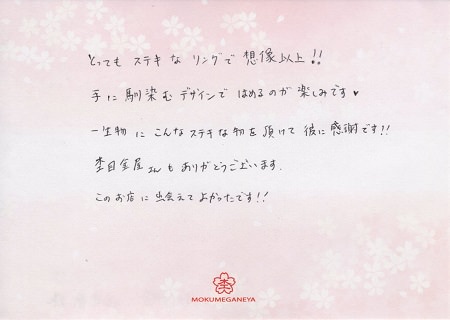 とっても ステキな リングで 想像以上!!
手に 馴染む デザインで はめるのが 楽しみです♥
一生物に こんなステキな物を 頂けて 彼に 感謝です!!
杢目金屋さんも ありがとうございます.
このお店に 出会えて よかったです!!
杢
MOKUMEGANEYA